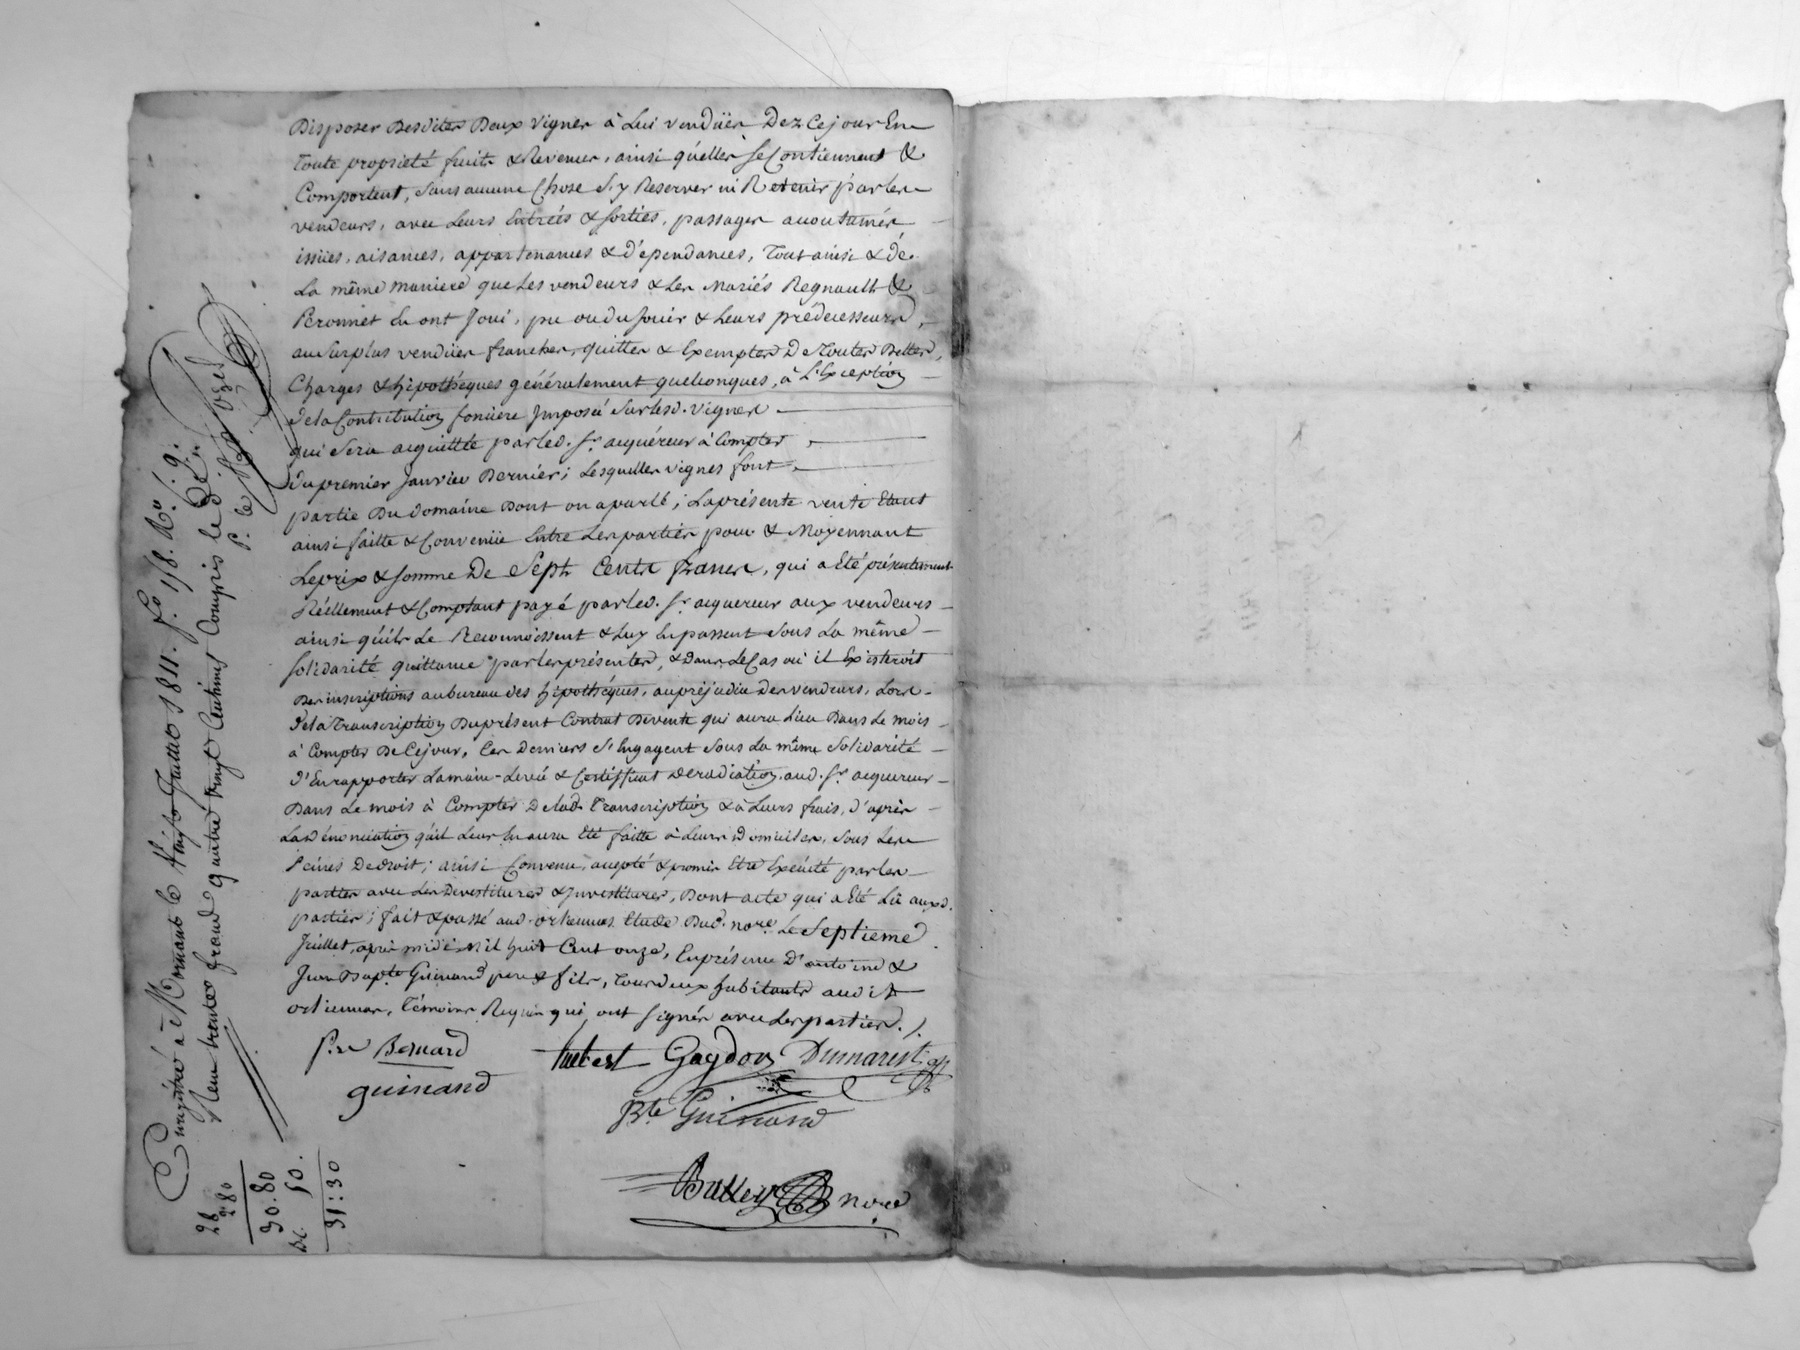 Disposer Desdites Deux vignes à Lui vendües Dez Ce jour En
Toute proprieté fruits & Revenus, ainsi qu'elles se Contiennent &
Comportent, sans aucune Chose S'y Reserver ni Retenir par les
vendeurs, avec Leurs Entrées & sorties, passages accoutumés
issües, aisances, appartenances & dépendances, Tout ainsi & de
La même maniere que Les vendeurs & Les Mariés Regnault &
Peronnet En ont Joui, pu ou du Jouir & Leurs prédecesseurs,
au Surplus vendües franches, quittes & Exemptes De Toutes Dettes,
Charges & hipothéques généralement quelconques, à L'Exception
de la Contribution fonciere Imposée Sur lesd. vignes
qui Sera acquittée par led. Sr. acquéreur à Compter
du premier Janvier Dernier; Lesquelles vignes font
partie Du Domaine Dont on a parlé; La présente vente Etant
ainsi faitte & Convenüe Entre Les parties pour & Moyennant
Le prix & somme De Sept Cents Francs, qui a Eté présentement
Réellement & Comptant payé par led. Sr. acquereur aux vendeurs
ainsi qu'ils Le Reconnoissent & Luy En passent Sous La même
solidarité quittance par Les présentes, & Dans Le Cas où il Existeroit
Des inscriptions au bureau des hipothéques, au préjudice Des vendeurs, Lors
de la Transcription Du présent Contrat De vente qui aura Lieu Dans Le mois
à Compter De Ce jour, Ces Derniers S'Engagent Sous La même Solidarité
d'En rapporter La main-Levée & Certifficat De radiation aud. Sr. acquereur
Dans Le mois à Compter De lad. Transcription & à Leurs frais, d'après
La Dénonciation qu'il Leur En aura Eté faitte à Leurs Domiciles, Sous Les
Peines De droit; ainsi Convenu, accepté & promis Etre Exécuté par les
parties avec Les Devestitures & Investitures, Dont acte qui a Eté Lû auxd.
parties; fait & passé aud. orliennas Etude Dud. nore. Le Septieme
Juillet après midi Mil huit Cent onze, En présence D'antoine &
Jean Bapte. Guinand pere & fils, Tous deux habitants audit
orliennas, Témoins Requis qui ont signés avec Les parties./.
Bernard
hubert Gaydon Dumarest
guinand
Bte Guinand
nore
Enrégistré à Mornant le Juillet 1811. fo. 118. Ro.
Reçu trente francs quatre vingt Centimes Compris le
28
2.80
30.80
50.
31:30